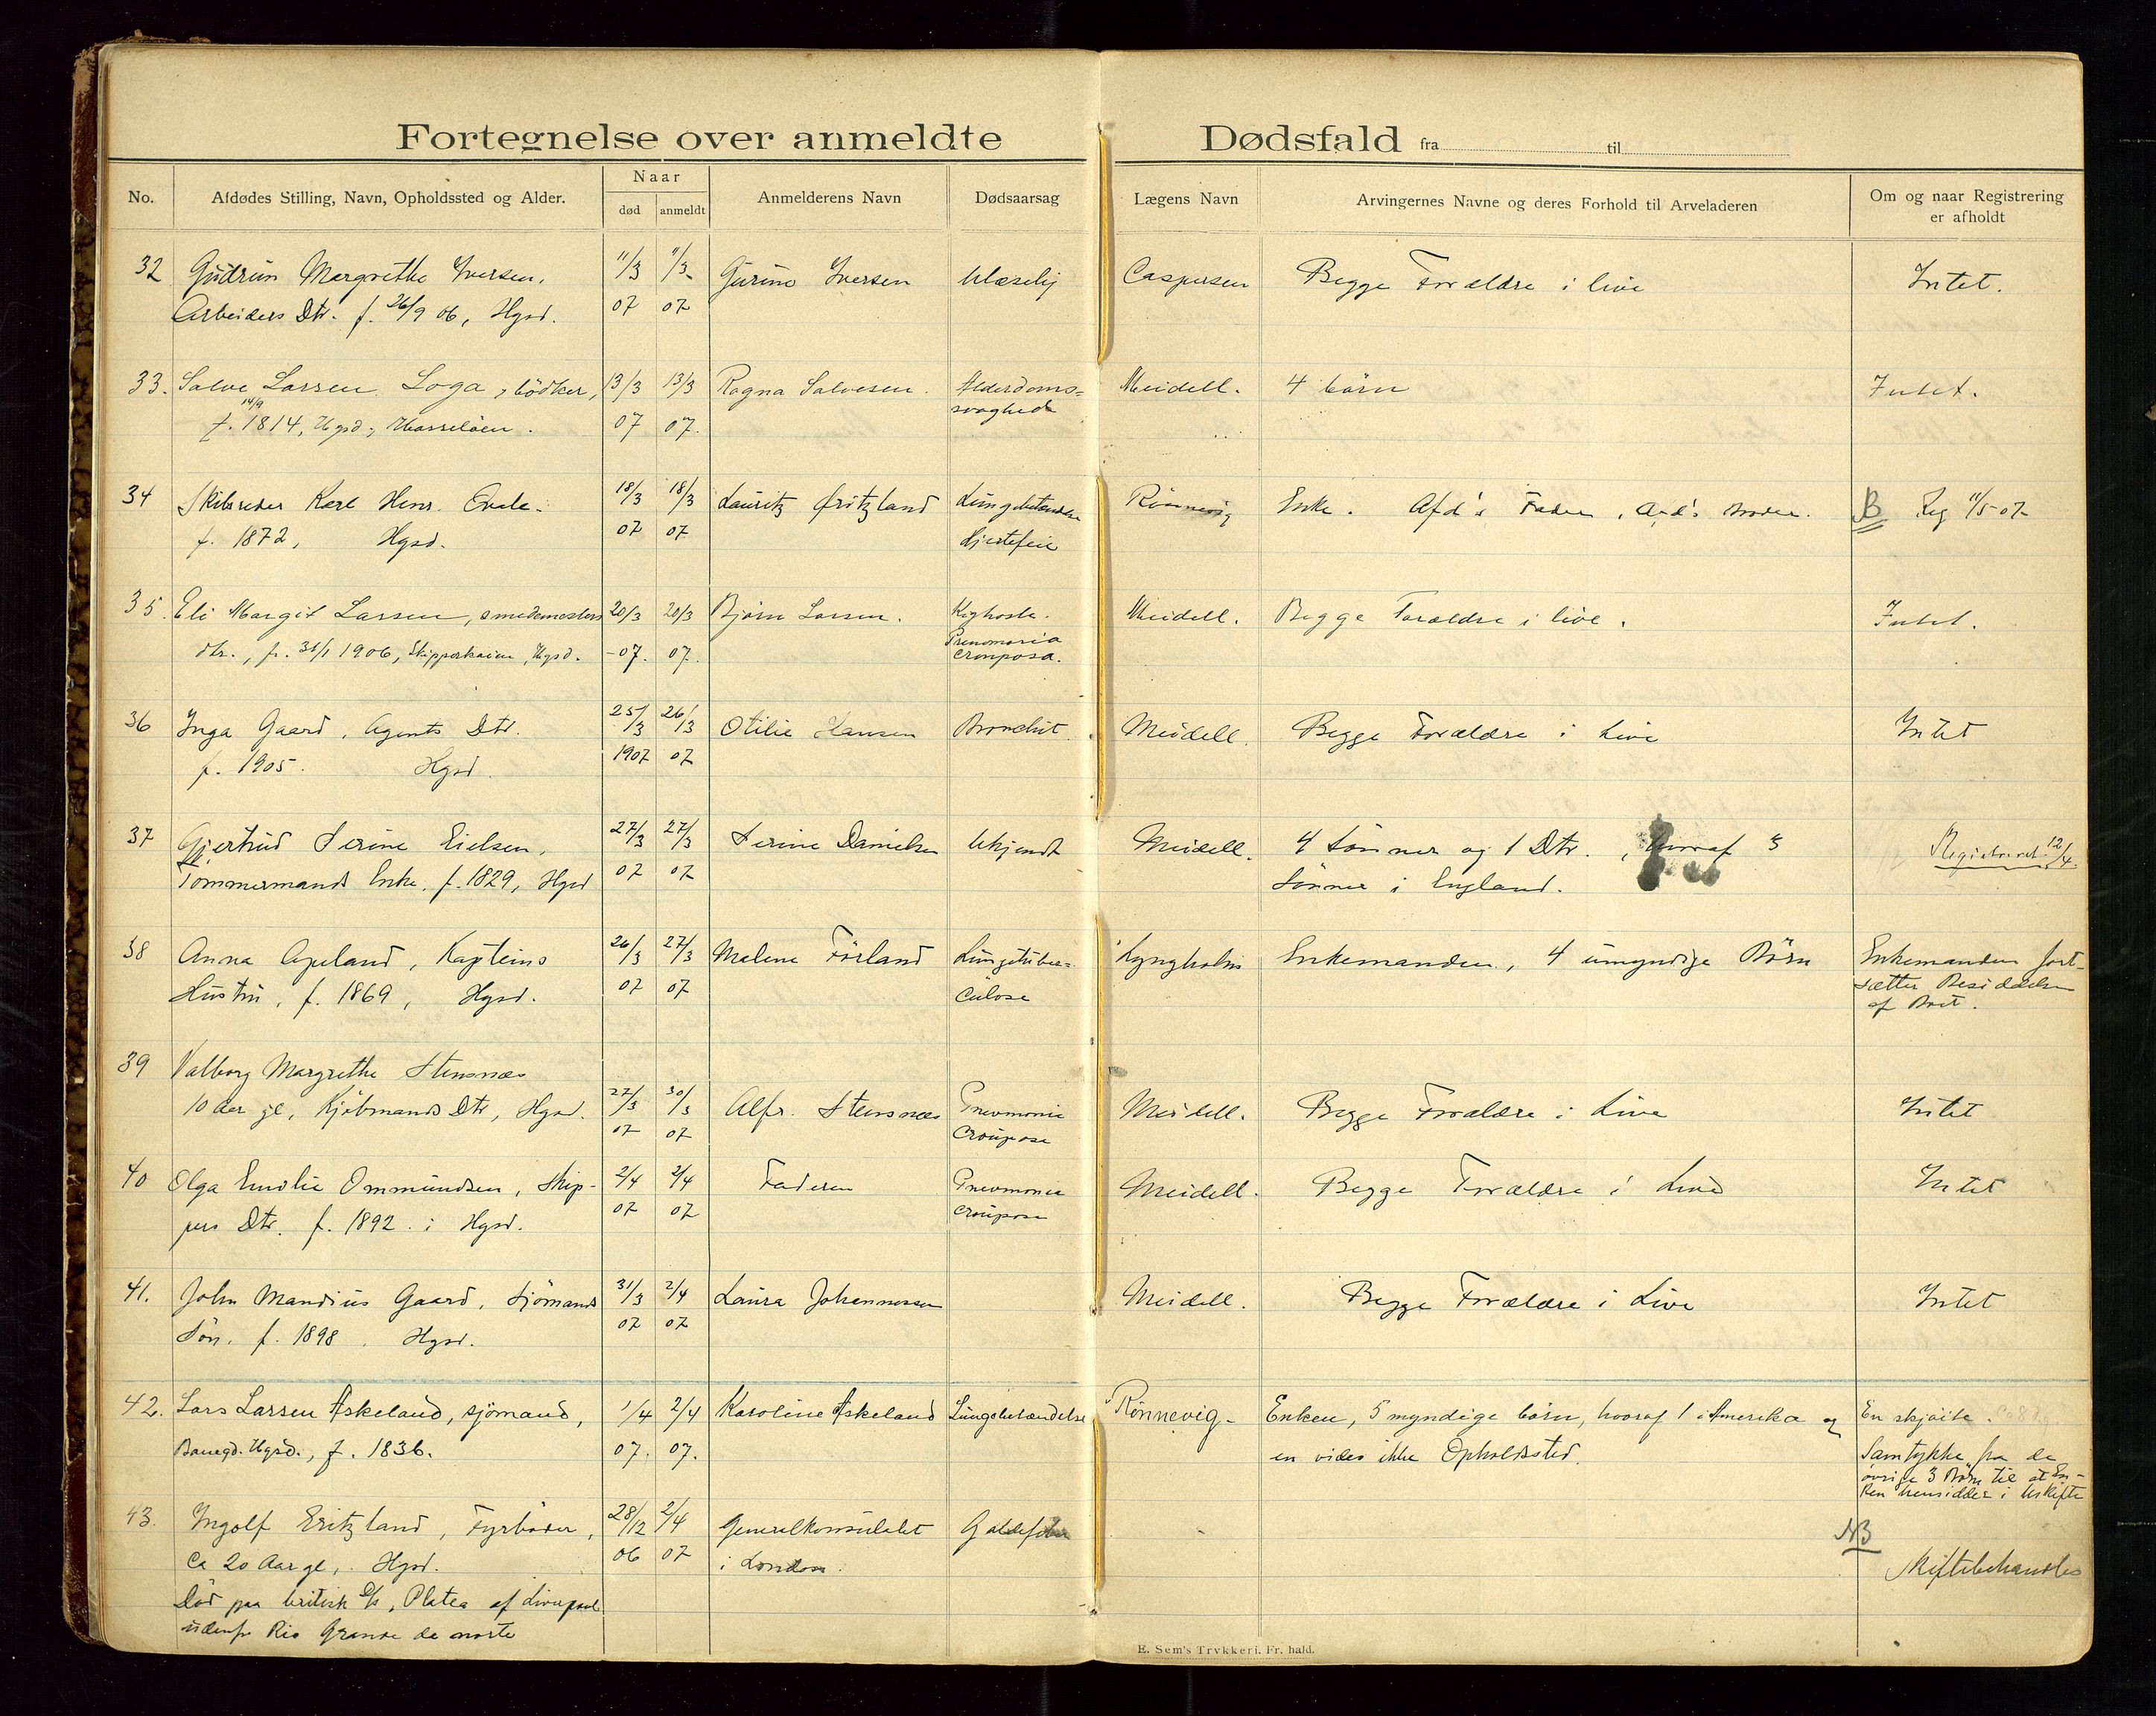 Fortegnelse over anmeldte Dødsfald fra til
No. Afdødes Stilling, Navn, Opholdssted og Alder. Naar død anmeldt Anmelderens Navn Dødsaarsag Lægens Navn Arvingernes Navne og deres Forhold til Arveladeren Om og naar Registrering er afholdt
32 Gudrun Margrethe Iversen, 11/3 11/3 Gurine Iversen Caspersen Begge Forældre i live Intet.
Arbeiders Dtr. f. 26/9 06, Hgsd. 07 07
33. Salve Larsen Loga, bödker, 13/3 13/3 Ragna Salvesen. Alderdoms= Meidell. 4 börn Intet.
14/9
f. 1814, Hgsd, Hasseløen. 07 07. svaghed
34 Skibsreder Karl Henr. 18/3 18/3 Lauritz Lungebetændelse Rönnevig Enke. Afd's Fader, Afd's Moder. NB Reg 11/5 07
f. 1872, Hgsd. 07 07 Hjertefeil
35. Eli Margit Larsen, smedemesters 20/3 20/3 Björn Larsen. Kighoste. Meidell. Begge Forældre i live. Intet.
dtr., f. 31/1 1906, Skipperkaien, Hgsd. -07. 07. Pneumonia
crouposa.
36 Inga Gaard, Agents Dtr. 25/3 26/3 Otilie Hansen Bronchit. Meidell. Begge Forældre i Live Intet
f. 1905. Hgsd. 1907 07
37 Gjertrud Serine Eielsen, 27/3 27/3 Serine Danielsen Ukjendt Meidell. 4 Sönner og 1 Dtr., hvoraf 3 Registreret 12/4
Tømmermands Enke. f. 1829, Hgsd 07 07 Sönner i England.
38 Anna Apeland, Kapteins 26/3 27/3 Malene Förland Lungetuber= Lyngholm Enkemanden, 4 umyndige Börn Enkemanden fort-
Hustru, f. 1869, Hgsd. 07 07 culose sætter Besiddelsen
af Boet.
39 Valborg Margrethe Stensnæs
10 Aar gl, Kjøbmands Dtr, Hgsd. 27/3 30/3 Alfr. Stensnæs Pneumonia Meidell. Begge Forældre i Live Intet
07 07 crouposa
40 Olga Emilie Ommundsen, Skip- 2/4 2/4 Faderen Pneumonia Meidell. Begge Forældre i Live Intet
pers Dtr. f. 1892. i Hgsd. 07 07 crouposa
41. John Mandius Gaard, Sjömands 31/3 2/4 Laura Johannessen Meidell. Begge Forældre i Live Intet
Sön. f. 1898. Hgsd. 07 07
42. Lars Larsen Askeland, sjömand, 1/4 2/4 Karoline Askeland Lungebetændelse Rönnevig- Enken, 5 myndige börn, hvoraf 1 i Amerika og En skjøite.
Hgsd., f. 1836. 07. 07. en vides ikke Opholdssted. Samtykke fra de
övrige 3 Börn til at En-
ken hensidder i Uskifte
43. Ingolf Eritzland, Fyrböder, 28/12 2/4 Generalkonsulatet NB
ca 20 Aar gl, Hgsd. 06 07 i London. Skiftebehandles
Död paa britisk D/s, Platea af Liverpool
udenfr Rio Grande do norte
E. Sem's Trykkeri. Fr.hald.